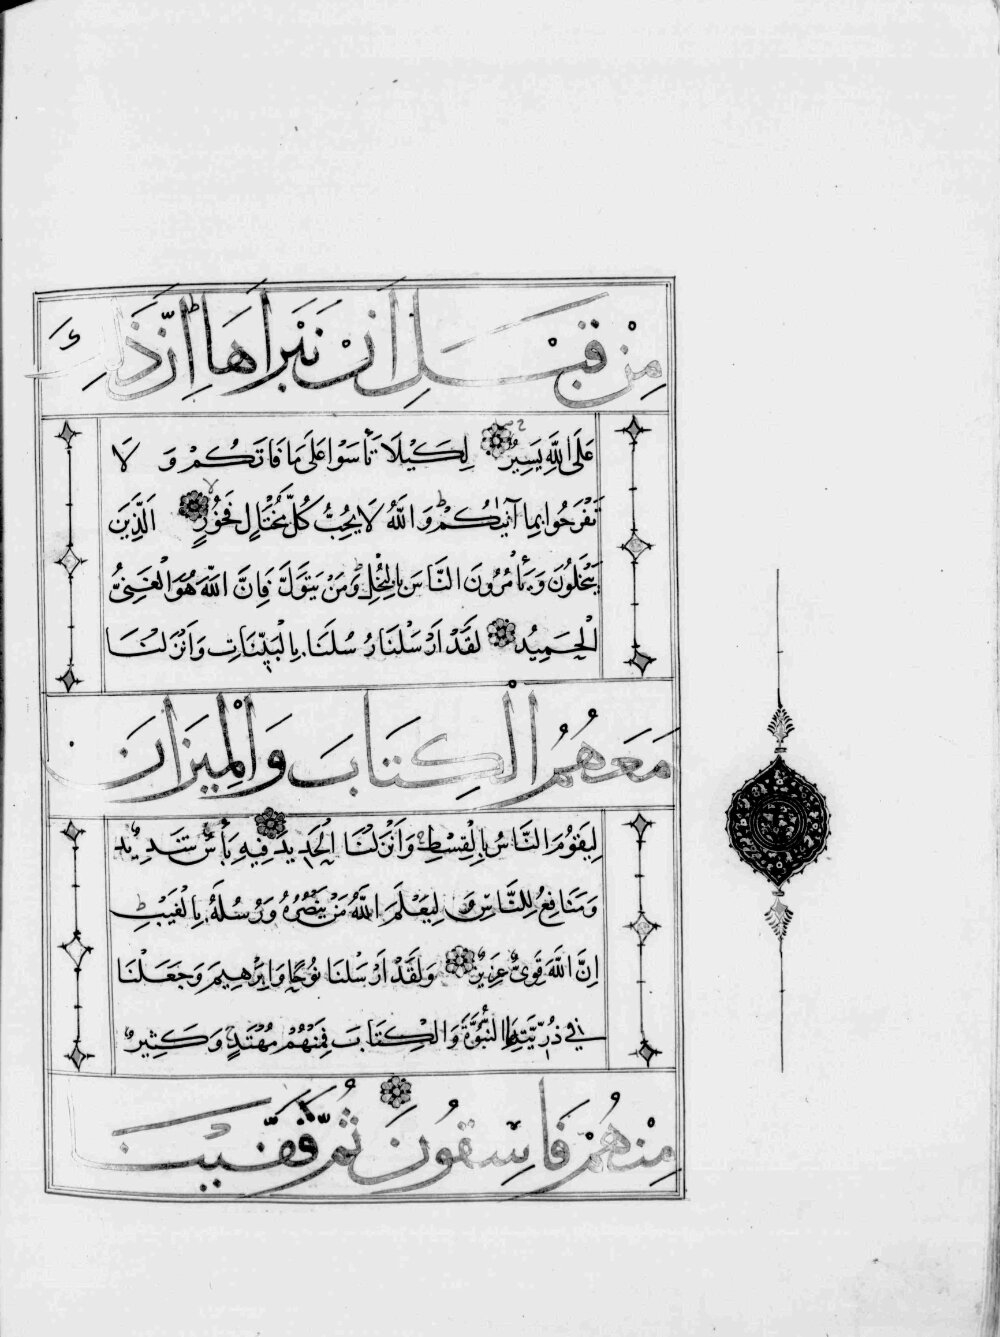 مِنْ قَبْلِ اَنْ نَبْرَاَهَا اِنَّ ذَلِكَ
عَلَى اللَّهِ يَسِيرٌ لِكَيْلَا تَأْسَوْا عَلَى مَا فَاتَكُمْ وَ لَا
تَفْرَحُوا بِمَا آتَيكُمْ وَ اللَّهُ لَا يُحِبُّ كُلَّ مُخْتَالٍ فَخُورٍ اَلَّذِينَ
يَبْخَلُونَ وَ يَأْمُرُونَ النَّاسَ بِالْبُخْلِ وَمَنْ يَتَوَلَّ فَاِنَّ اللَّهَ هُوَ الْغَنِىُّ
الْحَمِيدُ لَقَدْ اَرْسَلْنَا رُسُلَنَا بِالْبَيِّنَاتِ وَاَنْزَلْنَا
مَعَهُمُ الْكِتَابَ وَالْمِيزَانَ
لِيَقُومَ النَّاسُ بِالْقِسْطِ وَاَنْزَلْنَا الْحَدِيدَ فِيهِ بَأْسٌ شَدِيدٌ
وَمَنَافِعُ لِلنَّاسِ وَ لِيَعْلَمَ اللَّهُ مَنْ يَنْصُرُهُ وَرُسُلَهُ بِالْغَيْبِ
اِنَّ اللَّهَ قَوِىٌّ عَزِيزٌ وَلَقَدْ اَرْسَلْنَا نُوحًا وَاِبْرٰهِيمَ وَجَعَلْنَا
فِى ذُرِّيَّتِهِمَا النُّبُوَّةَ وَالْكِتَابَ فَمِنْهُمْ مُهْتَدٍ وَ كَثِيرٌ
مِنْهُمْ فَاسِقُونَ ثُمَّ قَفَّيْنَا